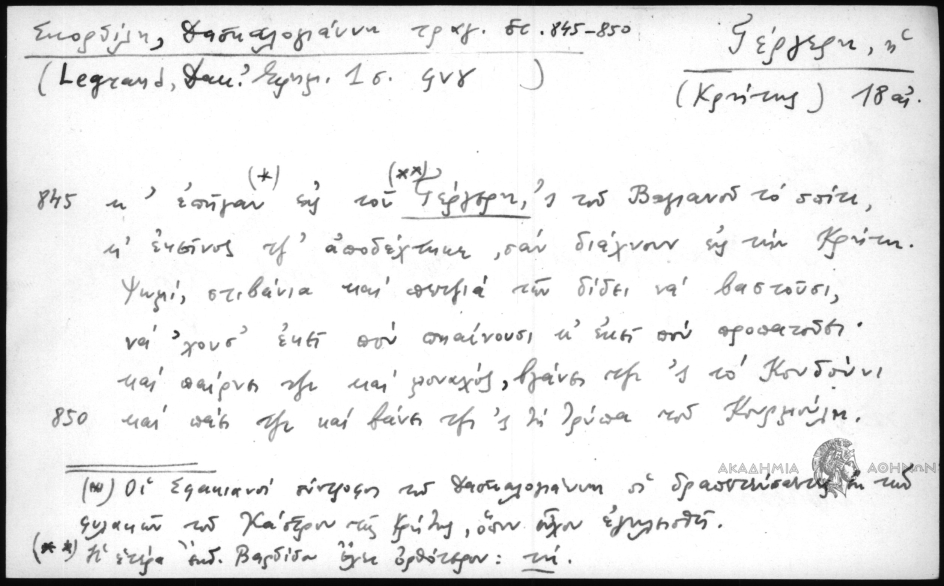 Σκορδίλη, Δασκαλογιάννη τραγ. στ. 845-850
Γέργερη, ἡ
(Legrand, Δακ. Ἱστορ. 1 σ. ϟνγ )
(Κρήτης) 18 αἰ.
845 κ' ἐπῆγαν (*) εἰς τοῦ (**) Γέργερη, 'ς τοῦ Βαγιανοῦ τὸ σπίτι,
κ' ἐκεῖνος τσ' ἀποδέχτηκε, σὰν διάχνουν εἰς τὴν Κρήτη.
Ψωμί, στιβάνια καὶ πετζιὰ τῶν δίδει νὰ βαστοῦσι,
νὰ 'χουσ' ἐκεῖ ποὺ πηαίνουσι κ' ἐκεῖ ποὺ προπατοῦσι·
καὶ παίρνει τσι καὶ μοναχός, βγάνει τσι 'ς τὸ Κουδούνι
850 καὶ πάει τσι καὶ βάνει τσι 'ς τὴ τρύπα τοῦ Κουρμούλη.
(*) Οἱ Σφακιανοὶ σύντροφοι τοῦ Δασκαλογιάννη οἱ δραπετεύσαντες ἐκ τῶν
φυλακῶν τοῦ Κάστρου τῆς Κρήτης, ὅπου εἶχον ἐγκλεισθῆ.
(**) Ἡ ἑτέρα ἔκδ. Βαρδίδου ἔχει ὀρθότερον: τή.
ΑΚΑΔΗΜΙΑ ΑΘΗΝΩΝ